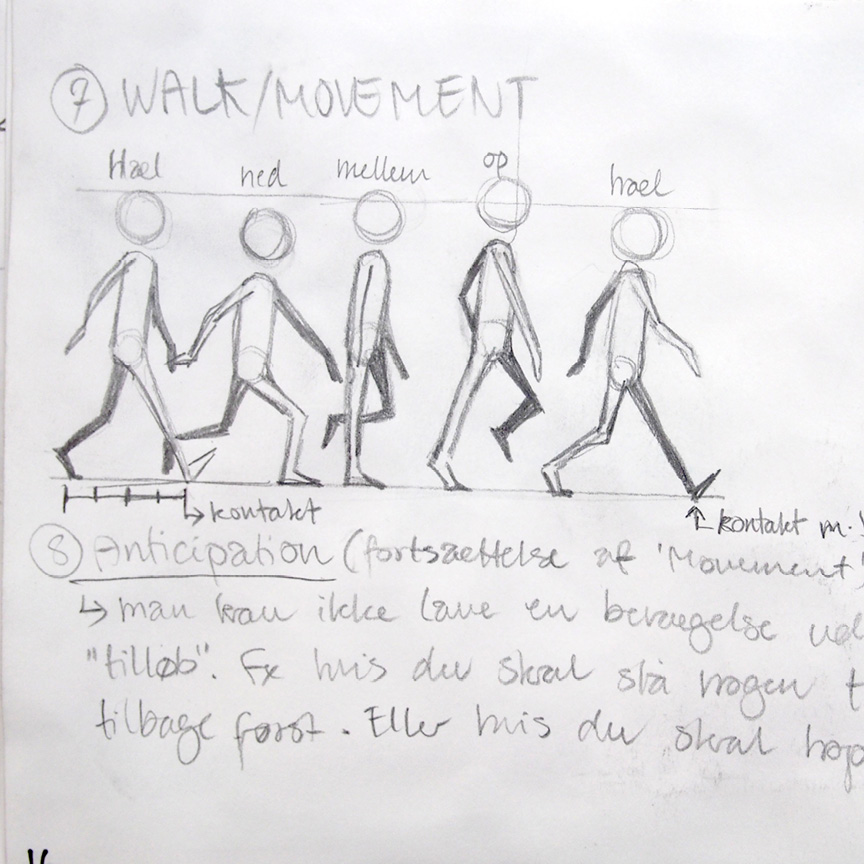 7 WALK/MOVEMENT
Hæl ned mellem op hæl
↳ kontakt
kontakt m.
8 Anticipation (fortsættelse af 'Movement'
↳ man kan ikke lave en bevægelse
"tilløb". Fx hvis du skal slå nogen
tilbage først. Eller hvis du skal